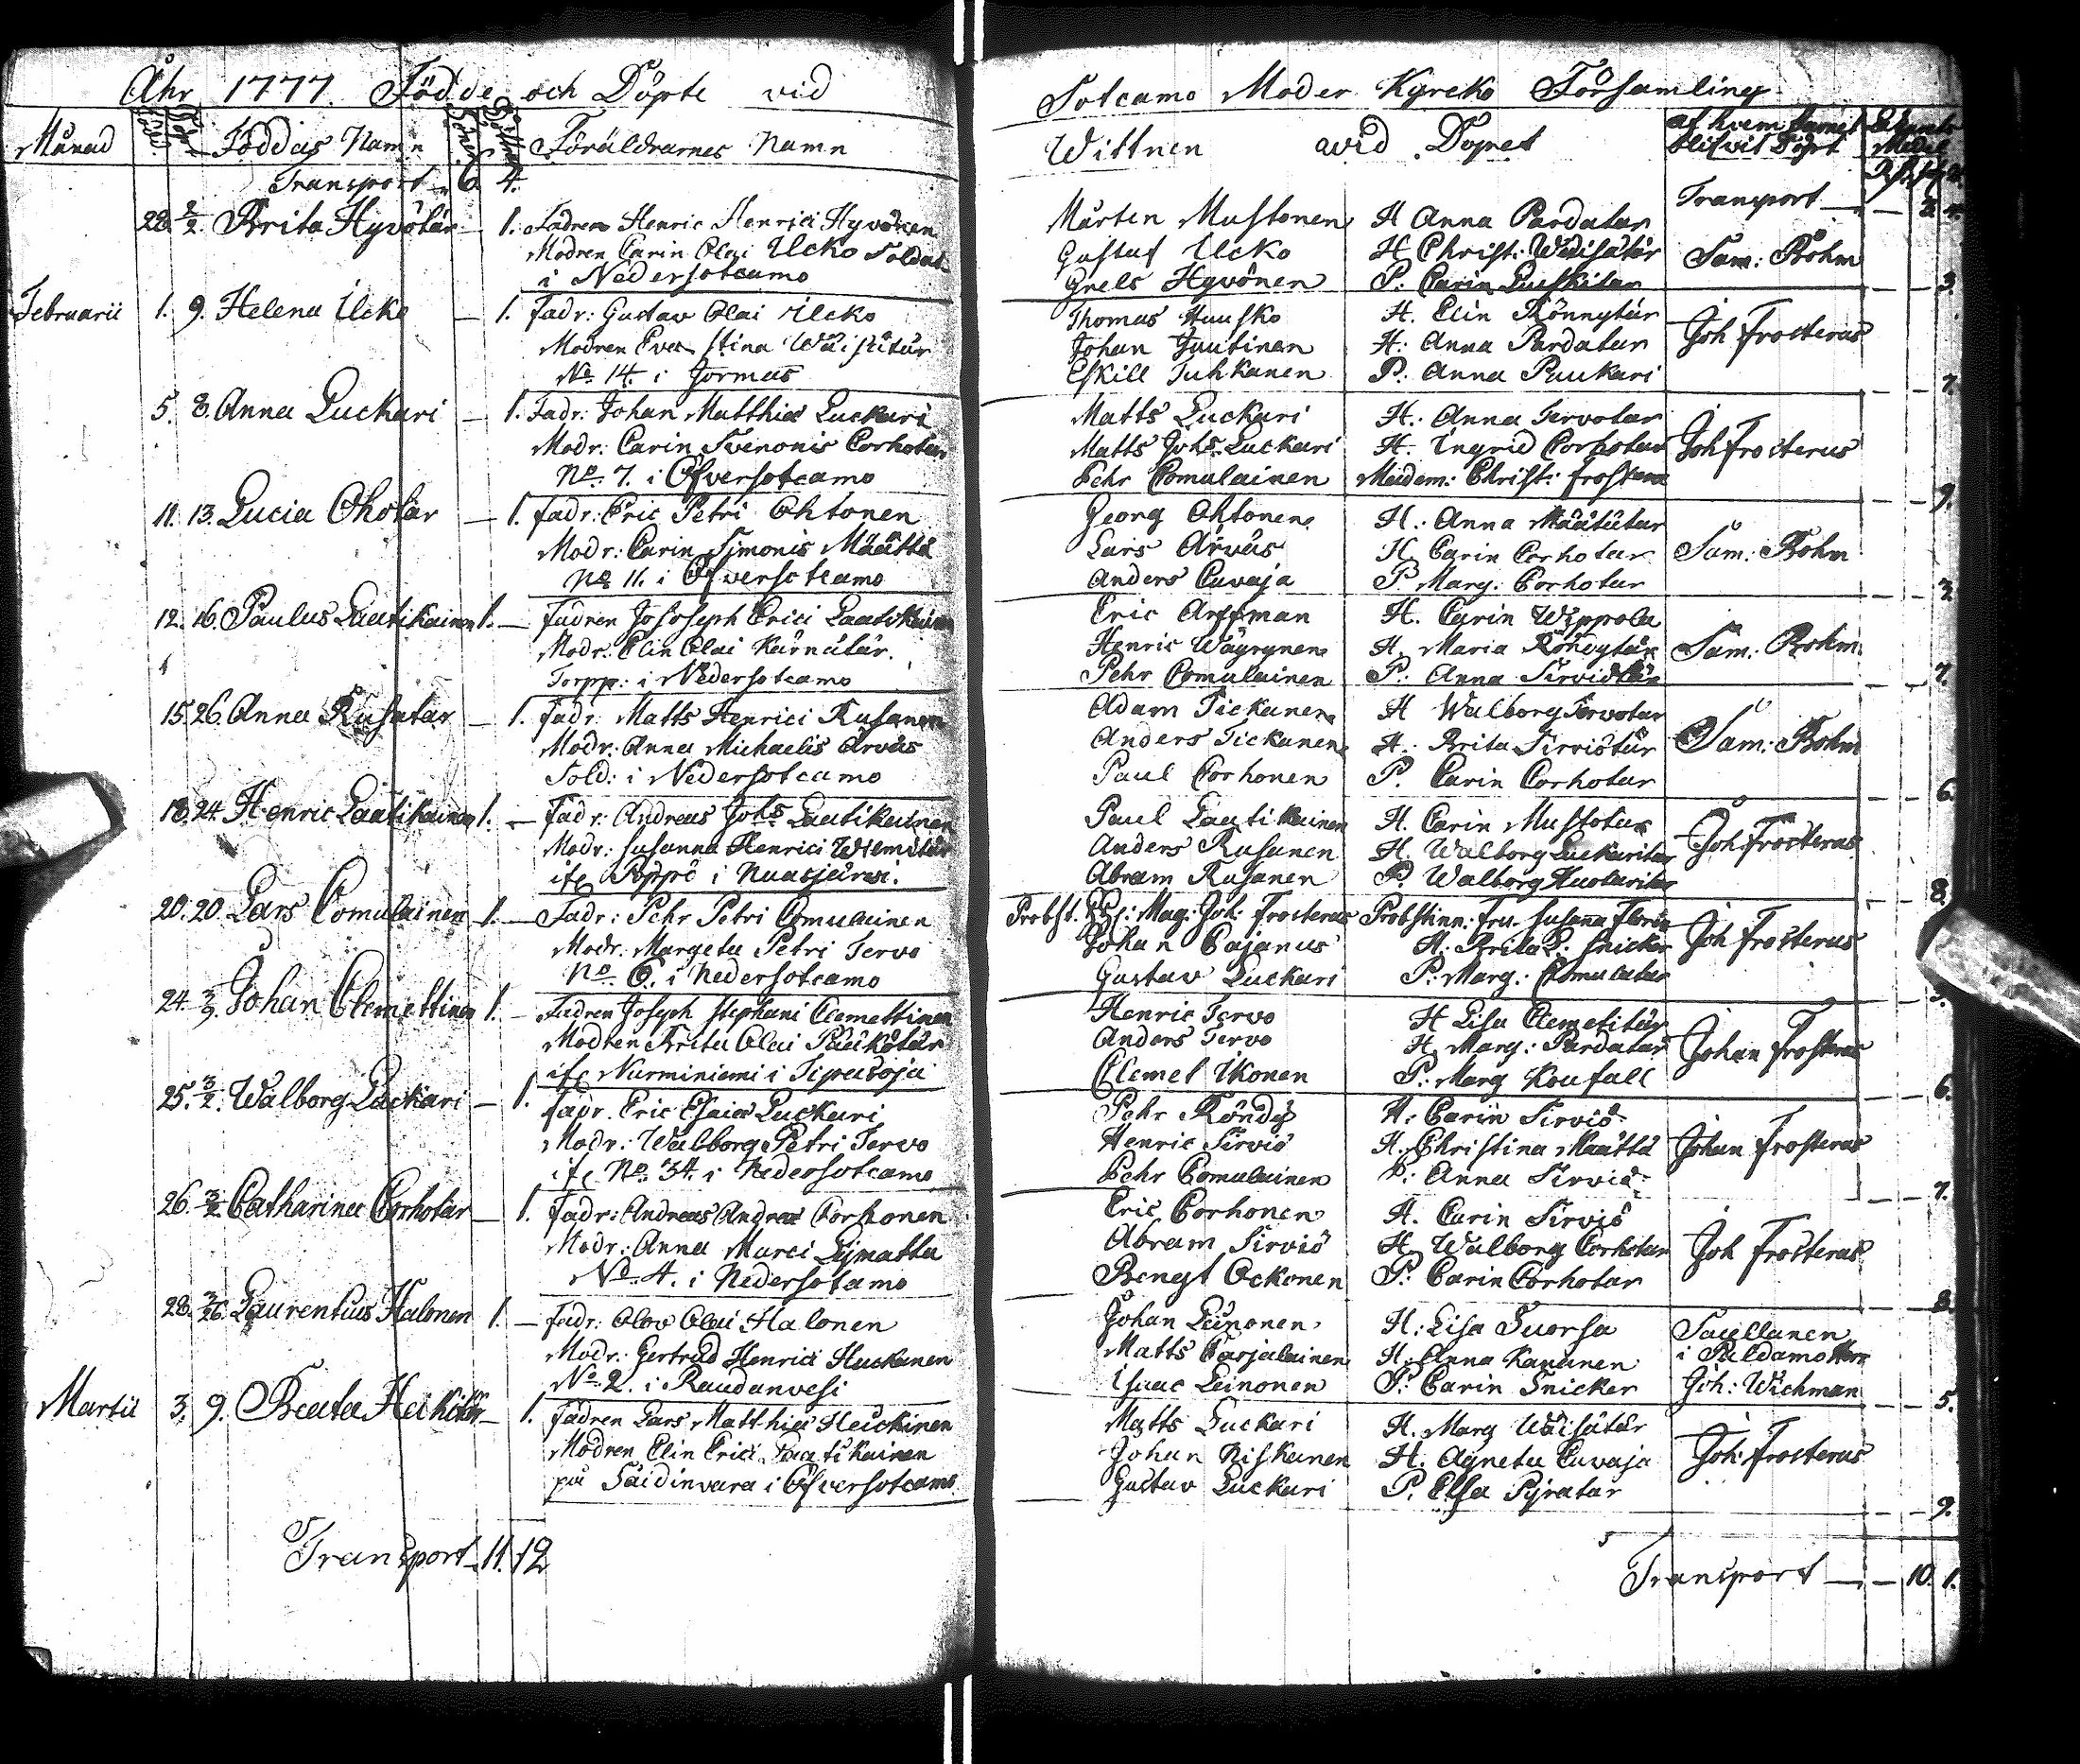 Åhr 1777. Födde och Döpte vid
Månad Födde Döpte Föddas Namn Föräldrarnes Namn
Transport 6. 4.
28. 2/2. Brita Hyvötär — 1. Fadren Henric Henrici Hyvönen
Modren Carin Olai Ucko Soldat
i Nedersotcamo
Februarii 1. 9. Helena Ucko — 1. Fadr: Gustav Olai Ucko
Modren Eva Stina Wäisätär
No. 14. i Jormas
5. 8. Anna Luckari — 1. Fadr: Johan Matthiæ Luckari
Modr: Carin Svenonis Corhotar
No. 7. i Öfversotcamo
11. 13. Lucia Ohotar — 1. Fadr: Eric Petri Ohtonen
Modr: Carin Simonis Määttä
No 11. i Öfversotcamo
12. 16. Paulus Laatikainen 1. — Fadren Jososeph Erici Laatikainen
Modr: Elin Olai Kärnätär.
Torpp: i Nedersotcamo
15. 26. Anna Rusatar — 1. Fadr: Matts Henrici Rusanen
Modr: Anna Michaelis Arvas
Sold: i Nedersotcamo
18. 24. Henric Laatikainen 1. — Fadr: Andreas Johs Laatikainen
Modr: Susanna Henrici
i Nuasjärvi.
20. 20. Lars Comulainen 1. — Fadr: Pehr Petri Comulainen
Modr: Margeta Petri Tervo
No. 6. i Nedersotcamo
24. 3/9. Johan Clemettinen 1. — Fadren Joseph Stephani Clemettinen
Modren Brita Olai
ifr Nurminiemi i Tipasoja
25. 3/2. Walborg Luckari — 1. Fadr. Eric Esaiæ Luckari
Modr: Walborg Petri Tervo
ifr No. 34. i Nedersotcamo
26. 3/2. Catharina Corhotar — 1. Fadr: Andreas Andreæ Corhonen
Modr: Anna Marci Lijmatta
No. 4. i Nedersotamo
28. 3/26. Laurentius Halonen 1. — Fadr: Olov Olai Halonen
Modr: Gertrud Henrici Huckanen
No. 2. i Raudanvesi
Martii 3. 9. Beata Heikitär — 1. Fadren Lars Matthiæ Heickinen
Modren Elin Erici Laatikainen
på Saidinvara i Öfversotcamo
Transport 11. 12
Sotcamo Moder Kyrcko Församling
Wittnen wid Dopet af hvem barnet blifvit Döpt
Transport — —
Mårten Mustonen H Anna Pardatar
Gustaf Ucko H Christ: Wäisätär Sam: Bohm
Grels Hyvönen P: Carin — 3.
Thomas Huusko H. Elin Rönnytär
Johan Juutinen H: Anna Pardatar Joh Frosterus
Eskill Tuhkanen P: Anna Puukari — 7.
Matts Luckari H: Anna Tervotar
Matts Johs: Luckari H: Ingrid Corhotar Joh Frosterus
Pehr Comulainen Madem: Christ: Frostera — 9.
Georg Ohtonen H: Anna Määtätar
Lars Arvas H Carin Corhotar Sam: Bohm
Anders Cavaja P Marg: Corhotar
Eric Arffman H. Carin Wippola
Henric Wäyrynen H. Maria Röndytär Sam: Bohm
Pehr Comulainen P: Anna — 7.
Adam Tickanen H Walborg Tervotar
Anders Tickanen H. Brita Sirviötär Sam: Bohm
Paul Corhonen P. Carin Corhotar — 6.
Paul Laatikainen H. Carin Mustotar
Anders Rusanen H. Walborg Luckaritar Joh Frosterus
Abram Rusanen P. Walborg — 8.
Probst. Mag: Joh: Frosterus Probstinn. Fru. Susanna
Johan Cajanus H: Brita Snicker Joh Frosterus
Gustav Luckari P: Marg: Comulatar
Henric Tervo H Lisa Clemetitär
Anders Tervo H Marg: Pardatar Johan Frosterus
Clemet Ikonen P: Marg — 6.
Pehr Röndy H: Carin Sirviö
Henric Sirviö H. Christina Määttä Johan Frosterus
Pehr Comulainen P: Anna Sirviö — 7.
Eric Corhonen H. Carin Sirviö
Abram Sirviö H Walborg Corhotar Joh Frosterus
Bengt Ockonen P: Carin Corhotar — 8.
Johan Leinonen H: Lisa Suorsa
Matts Carjalainen H: Anna Kananen i Paldamo
Isaac Leinonen P: Carin Snicker Joh: Wichman — 5.
Matts Luckari H. Marg Wäisätär
Johan Kiskanen H. Agneta Cavaja Joh: Frosterus
Gustav Luckari P. Elsa Pijratar — 9.
Transport — — 10. 1.